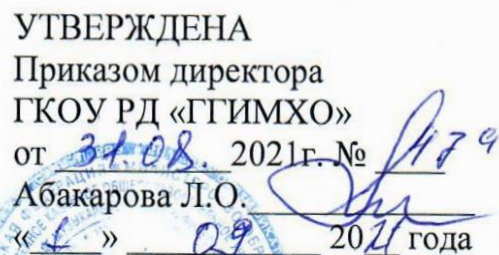 УТВЕРЖДЕНА
Приказом директора
ГКОУ РД «ГГИМХО»
от 31.08. 2021г. №
Абакарова Л.О.
« » 09 2021 года